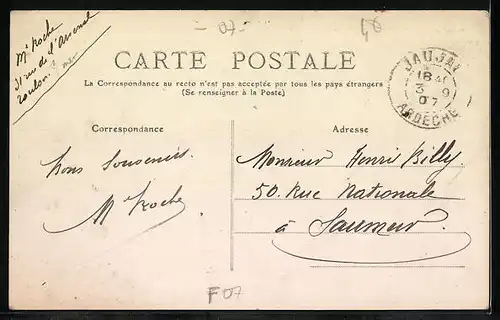 07
48
Mr Roche
31 rue de l'Arsenal
Toulon
CARTE POSTALE
La Correspondance au recto n'est pas acceptée par tous les pays étrangers
(Se renseigner à la Poste)
JAUJAC
18
3 9
07
ARDÈCHE
Correspondance
Adresse
Bons Souvenirs
Mr Roche
Monsieur Henri Billy
50. Rue Nationale
à Saumur.
F 07